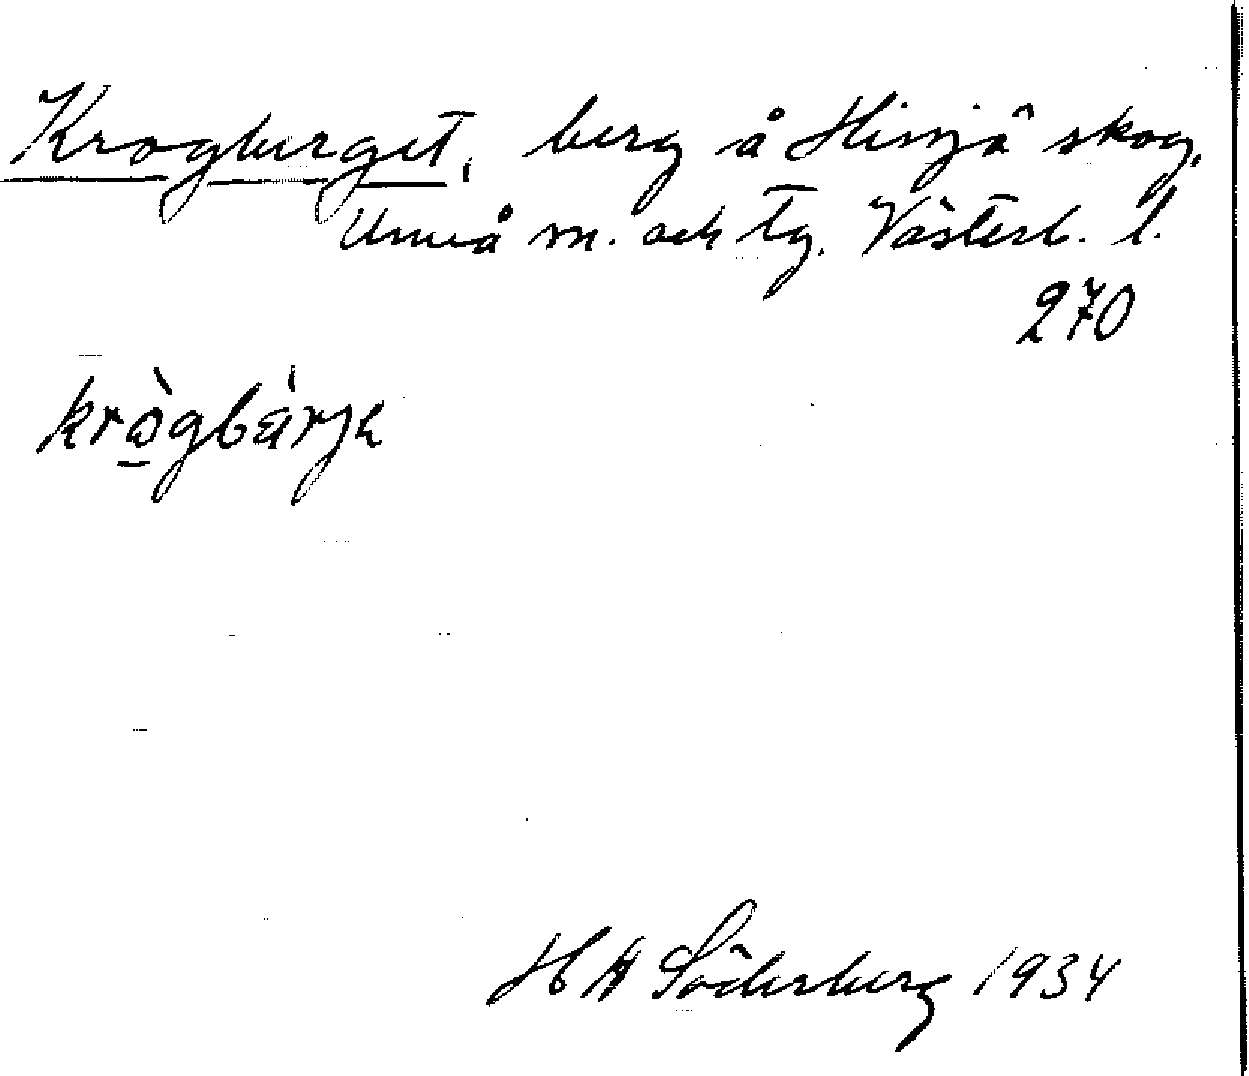 Krogberget, berg å Hissjö skog,
Umeå sn. och tg. Västerb. l.
270
krògbä́rjə
H A Söderberg 1934